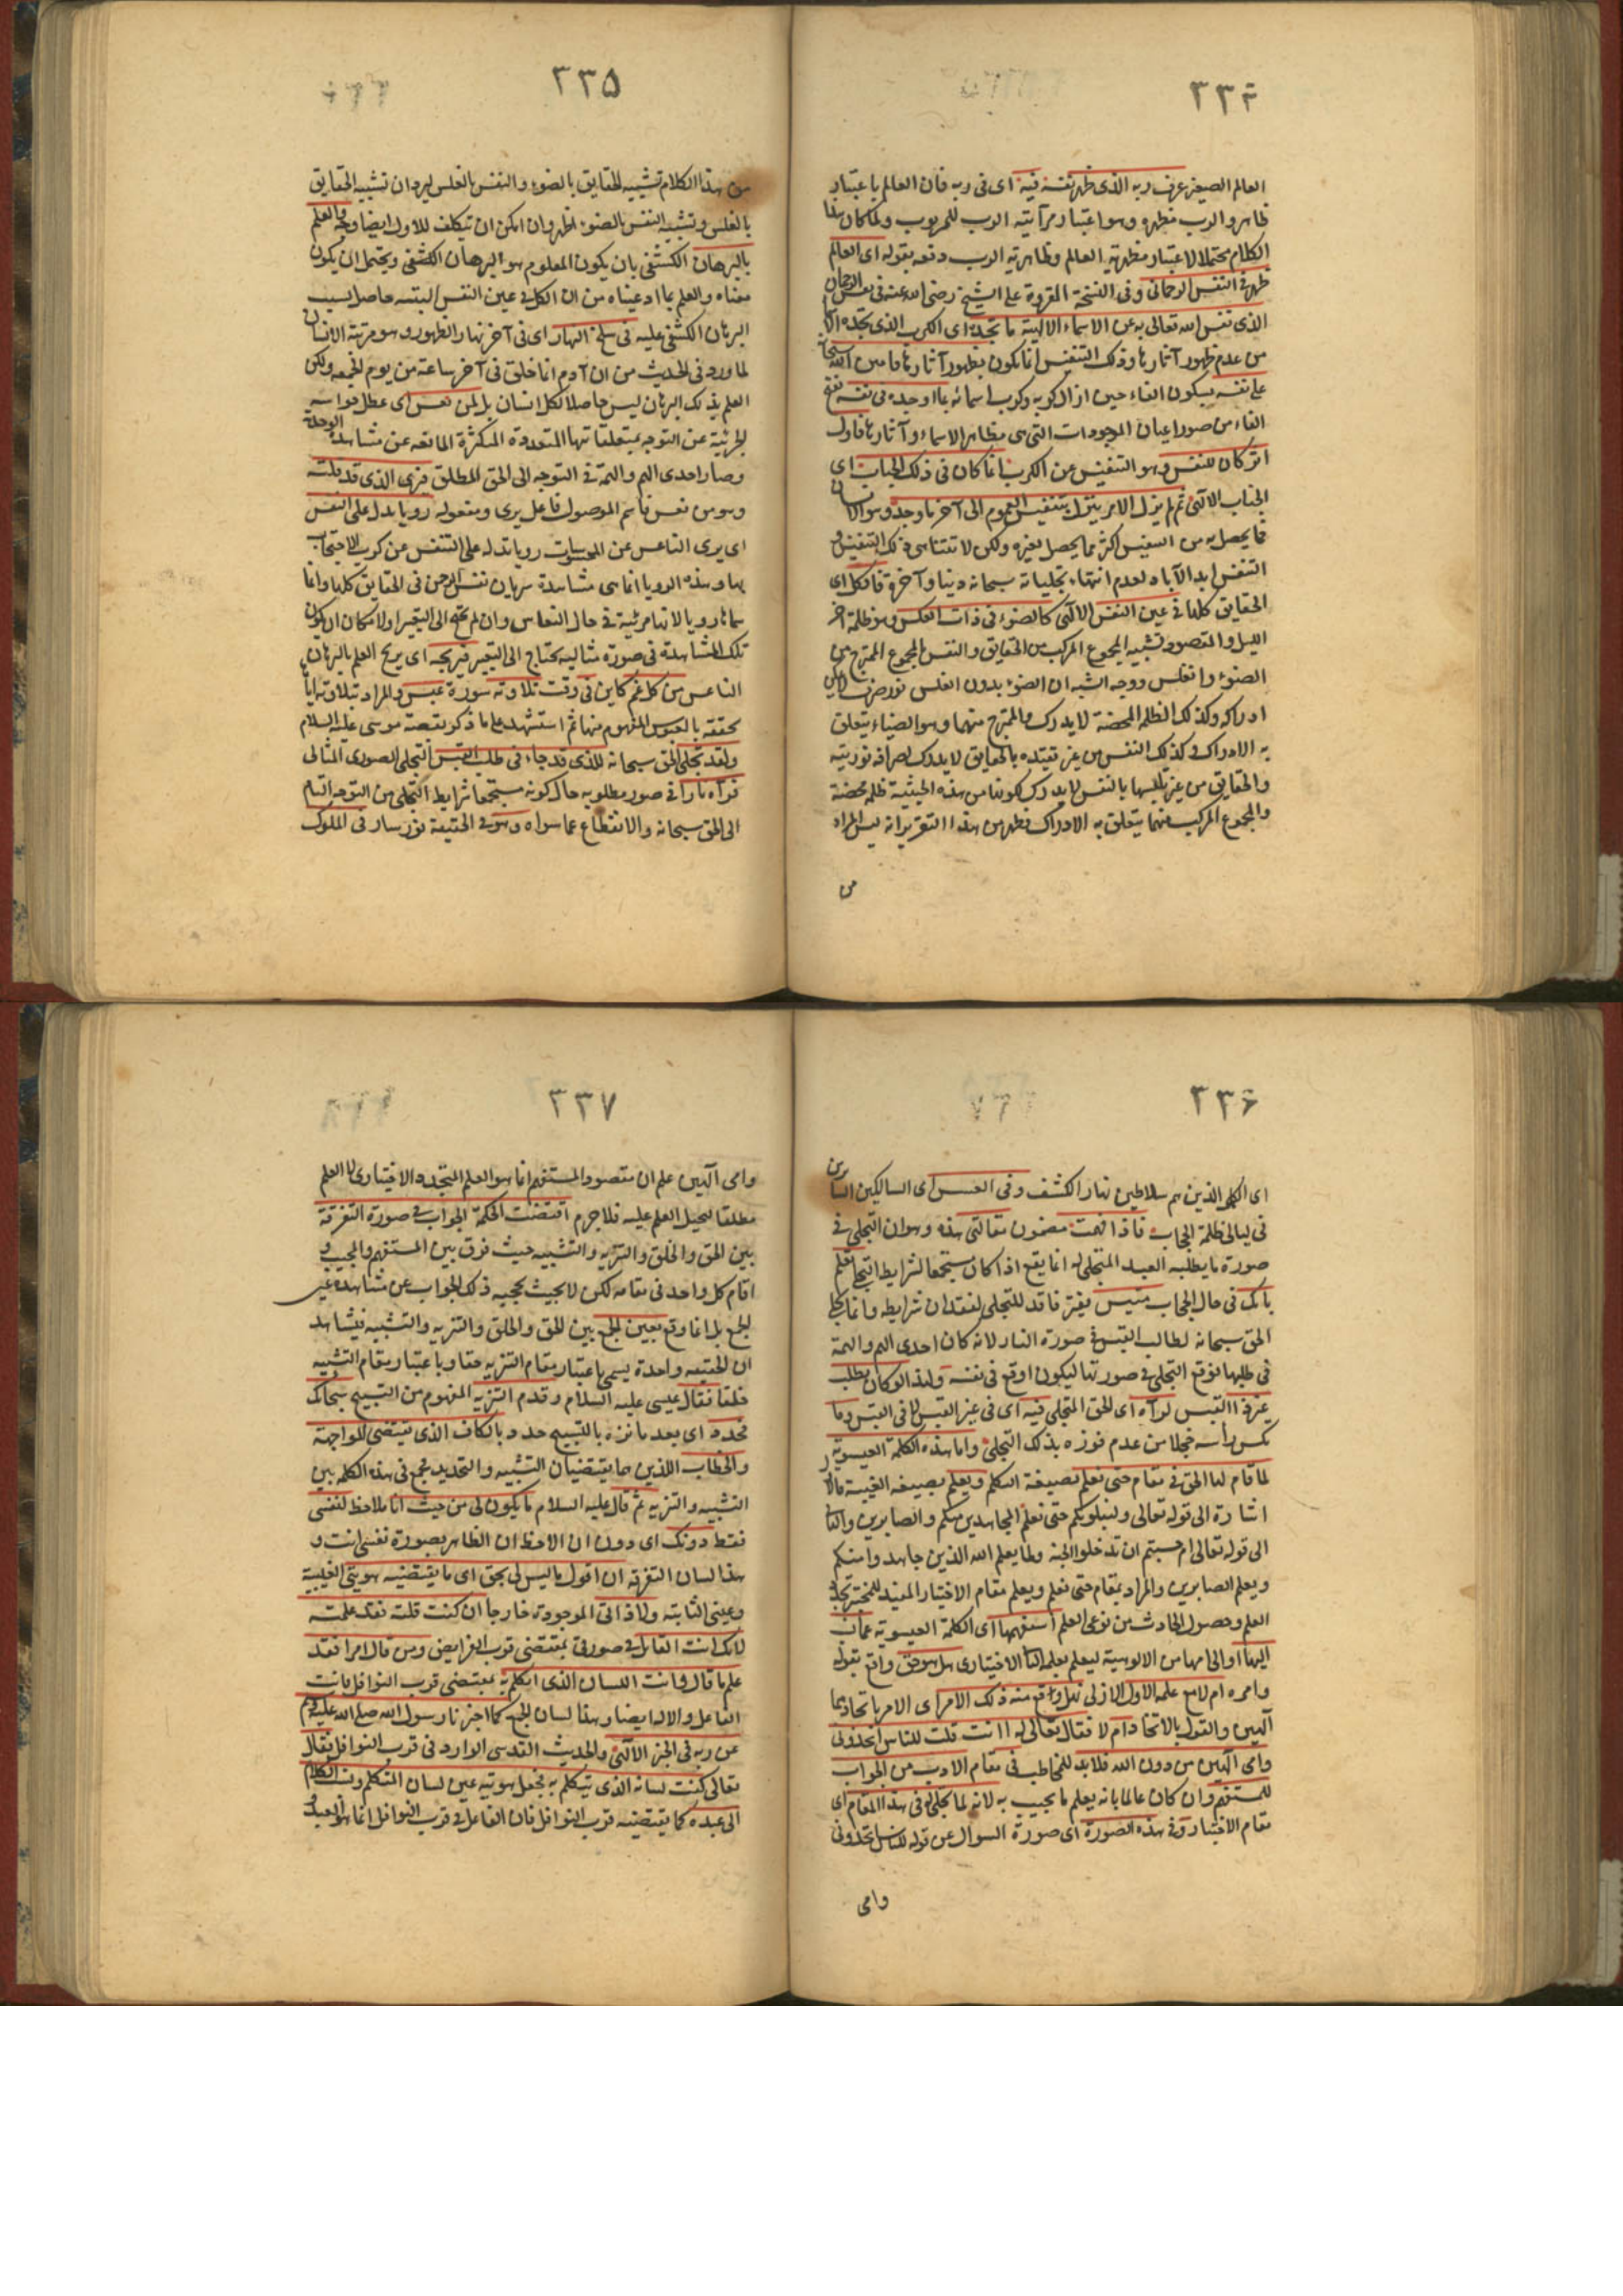 ٣٣٤
العالم الصغير عرف ربه الذى ظهر نفسه فيه اى فى ربه فان العالم باعتبار
ظاهر والرب مظهره وهو اعتبار مرآتية الرب للمربوب ولما كان هذا
الكلام محتملا لاعتبار مظهرية العالم وظاهرية الرب دفعه بقوله اى العالم
ظهر فى النفس الرحمانى وفى النسخة المقروة على الشيخ رضى الله عنه فى نفس الرحمان
الذى نفس الله تعالى به عن الاسماء الالهية ما تجده اى الكرب الذى تجده
من عدم ظهور آثارها وذلك التنفيس انما يكون بظهور آثارها فامتن الله سبحانه
على نفسه بسكون الفاء حين ازال كربه وكرب اسمائه بما اوجده فى نفسه بفتح
الفاء من صور اعيان الموجودات التى هى مظاهر الاسماء وآثارها فاول
اثر كان للنفس وهو التنفيس عن الكرب انما كان فى ذلك الجناب اى
الجناب الالهى ثم لم يزل الامر ينزل بتنفيس العموم الى آخر ما وجد وهو الانسان
فما يحصل به من التنفيس اكثر مما يحصل بغيره ولكن لا تتناهى ذلك التنفيس و
التنفس ابد الآباد لعدم انتهاء تجلياته سبحانه دنيا وآخرة فالكل اى
الحقايق كلها فى عين النفس الالهى كالضوء فى ذات الغلس وهو ظلمة آخر
الليل والمقصود تشبيه المجموع المركب من الحقايق والنفس بالمجموع الممتزج من
الضوء والغلس ووجه الشبه ان الضوء بدون الغلس نور صرف لا يمكن
ادراكه وكذلك الظلمة المحضة لا يدرك والممتزج منهما وهو الضياء يتعلق
به الادراك كذلك النفس من غير تقيده بالحقايق لا يدرك لصرافة نوريته
والحقايق من غير تلبسها بالنفس لا يدرك لكونها من هذه الحيثية ظلمة محضة
والمجموع المركب منهما يتعلق به الادراك فظهر من هذا التقرير انه ليس المراد
من
٣٣٥
من هذا الكلام تشبيه الحقايق بالضوء والنفس بالغلس ليرد ان تشبيه الحقايق
بالغلس وتشبيه النفس بالضوء اظهر وان امكن ان يتكلف للاول ايضا وجه والعلم
بالبرهان الكشفى بان يكون المعلوم هو البرهان الكشفى ويحتمل ان يكون
معناه والعلم بما ادعيناه من ان الكل فى عين النفس البتة حاصل بسبب
البرهان الكشفى عليه فى سلخ النهار اى فى آخر نهار الظهور وهو مرتبة الانسان
لما ورد فى الحديث من ان آدم انما خلق فى آخر ساعة من يوم الجمعه ولكن
العلم بذلك البرهان ليس حاصلا لكل انسان بل لمن نعس اى عطل حواسه
الجزئية عن التوجه بمتعلقاتها المتعددة المتكثرة المانعه عن مشاهدة الوحدة
وصار احدى الهم والهمة فى التوجه الى الحق المطلق فيرى الذى قد قلته
وهو من نعس فاسم الموصول فاعل يرى ومفعوله رويا يدل على النفس
اى يرى الناعس عن المحسوسات رويا تدله على التنفس عن كرب الاحتجاب
بها وهذه الرويا انما هى مشاهدة سريان نفس الرحمن فى الحقايق كلها وانما
سماها رويا لانها مرئية فى حال النعاس وان لم تحتج الى التعبير اولا مكان ان يكون
تلك المشاهدة فى صورة مثالية يحتاج الى التعبير فيريحه اى يريح العلم بالبرهان
الناعس من كل غم كاين فى وقت تلاوته سورة عبس والمراد بتلاوته اياها
تحققه بالعبوس المفهوم منها ثم استشهد على ما ذكر بقصة موسى عليه السلام
ولقد تجلى الحق سبحانه للذى قد جاء فى طلب القبس التجلى الصورى المثالى
فرآه نارا فى صور مطلوبه حال كونه مستجمعا شرايط التجلى من التوجه التام
الى الحق سبحانه والانقطاع عما سواه وهو فى الحقيقة نور سار فى الملوك
٣٣٦
اى الكمل الذين هم سلاطين نهار الكشف وفى العسس اى السالكين السايرين
فى ليالى ظلمة الحجاب فاذا فهمت مضمون مقالتى هذه وهو ان التجلى فى
صورة ما يطلبه العبد المتجلى له انما يقع اذا كان مستجمعا لشرايط التجلى تعلم
بانك فى حال الحجاب مبتئس مفتقر فاقد للتجلى لفقدان شرايطه وانما تجلى
الحق سبحانه لطالب القبس فى صورة النار لانه كان احدى الهم والهمة
فى طلبها فوقع التجلى فى صورتها ليكون اوقع فى نفسه ولذا لو كان يطلب
غير ذا القبس لرآه اى للحق المتجلى فيه اى فى غير القبس لا فى القبس وما
نكس رأسه خجلا من عدم فوزه بذلك التجلى واما هذه الكلمة العيسوية
لما قام لها الحق فى مقام حتى نعلم بصيغة المتكلم ويعلم بصيغه الغيبة فالاول
اشارة الى قوله تعالى ولنبلونكم حتى نعلم المجاهدين منكم والصابرين والثانى
الى قوله تعالى ام حسبتم ان تدخلوا الجنة ولما يعلم الله الذين جاهدوا منكم
ويعلم الصابرين والمراد بمقام حتى نعلم ويعلم مقام الاختبار المفيد للمختبر تجدد
العلم وحصول الحادث من نوعى العلم استفهمها اى الكلمة العيسوية عما نسب
اليها والى امها من الالوهية ليعلم بعلمه الثانى الاختبارى هل هو حق واقع بقوله
وامره ام لا مع علمه الاول الازلى بهل وقع منه ذلك الامر اى الامر باتخاذهما
آلهين والقول بالاتخاذ ام لا فقال تعالى له اانت قلت للناس اتخذونى
وامى آلهين من دون الله فلا بد للمخاطب فى مقام الادب من الجواب
للمستفهم وان كان عالما بانه يعلم ما يجيب به لانه لما تجلى له فى هذا المقام اى
مقام الاختبار وفى هذه الصورة اى صورة السوال عن قوله للناس اتخذونى
وامى
٣٣٧
وامى آلهين علم ان مقصود المستفهم انما هو العلم المتجدد الاختبارى لا العلم
مطلقا لتحيل العلم عليه فلا جرم اقتضت الحكمة الجواب فى صورة التفرقة
بين الحق والخلق والتنزيه والتشبيه حيث فرق بين المستفهم والمجيب و
اقام كل واحد فى مقامه لكن لا بحيث يحجبه ذلك الجواب عن مشاهدة عين
الجمع بل انما وقع بعين الجمع بين الحق والخلق والتنزيه والتشبيه فيشاهد
ان الحقيقه واحدة يسمى باعتبار مقام التنزيه حقا وباعتبار مقام التشبيه
خلقا فقال عيسى عليه السلام وقدم التنزيه المفهوم من التسبيح سبحانك
فحدد اى بعد ما نزه بالتسبيح حدد بالكاف الذى يقتضى المواجهة
والخطاب اللذين هما يقتضيان التشبيه والتحديد فجمع فى هذه الكلمه بين
التشبيه والتنزيه ثم قال عليه السلام ما يكون لى من حيث انا ملاحظ لنفسى
فقط دونك اى دون ان الاحظ ان الظاهر بصورة نفسى انت و
هذا لسان التفرقه ان اقول ما ليس لى بحق اى ما يقتضيه هويتى الغيبية
وعينى الثابتة ولا ذاتى الموجودة خارجا ان كنت قلته فقد علمته
لانك انت القايل فى صورتى بمقتضى قرب الفرايض ومن قال امرا فقد
علم ما قال وانت اللسان الذى اتكلم به بمقتضى قرب النوافل فانت
الفاعل والاله ايضا وهذا لسان الجمع كما اخبرنا رسول الله صلى الله عليه وسلم
عن ربه فى الخبر الالهى والحديث القدسى الوارد فى قرب النوافل فقال
تعالى كنت لسانه الذى يتكلم به فجعل هويته عين لسان المتكلم ونسب الكلام
الى عبده كما يقتضيه قرب النوافل فان الفاعل فى قرب النوافل انما هو العبد و